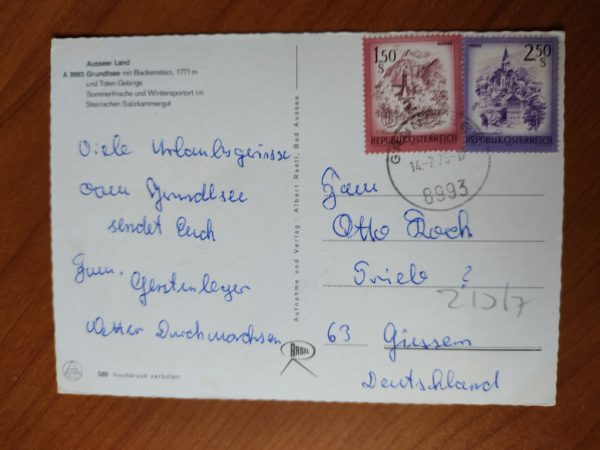 Ausseer Land
A 8993 Grundlsee mit Backenstein, 1771 m
und Toten Gebirge
Sommerfrische und Wintersportort im
Steirischen Salzkammergut
Viele Urlaubsgrüsse
vom Grundlsee
sendet Euch
Fam. Gerstenleger
Wetter Durchwachsen
585 Nachdruck verboten
Aufnahme und Verlag: Albert Rastl, Bad Aussee
BASTL
1.50 S
REPUBLIK ÖSTERREICH
2.50 S
REPUBLIK ÖSTERREICH
8993
Fam
Otto
63 Giessen
Deutschland